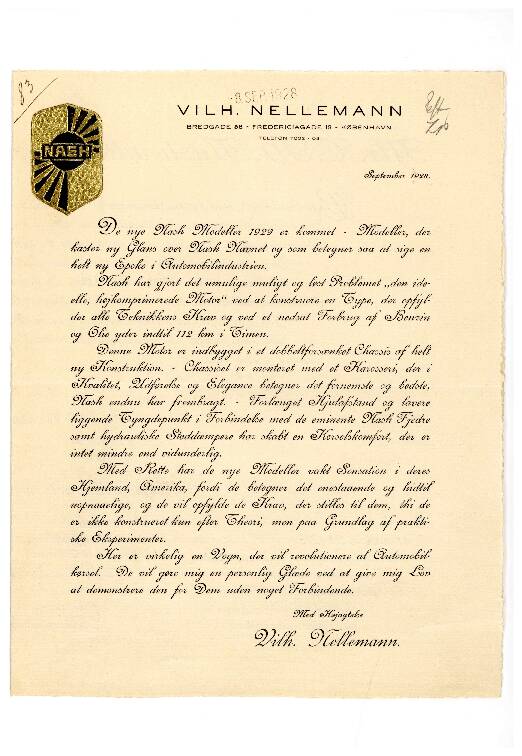 83
8 SEP 1928
VILH. NELLEMANN
BREDGADE 56 - FREDERICIAGADE 19 - KØBENHAVN
TELEFON 7092 - 04
NASH
September 1928.
De nye Nash Modeller 1929 er kommet - Modeller, der
kaster ny Glans over Nash Navnet og som betegner saa at sige en
helt ny Epoke i Automobilindustrien.
Nash har gjort det umulige muligt og løst Problemet „den ide-
elle, højkomprimerede Motor“ ved at konstruere en Type, der opfyl-
der alle Teknikkens Krav og ved et nedsat Forbrug af Benzin
og Olie yder indtil 112 km i Timen.
Denne Motor er indbygget i et dobbeltforsænket Chassis af helt
ny Konstruktion. - Chassiset er monteret med et Karosseri, der i
Kvalitet, Udførelse og Elegance betegner det fornemste og bedste,
Nash endnu har frembragt. - Forlænget Hjulafstand og lavere
liggende Tyngdepunkt i Forbindelse med de eminente Nash Fjedre
samt hydrauliske Støddæmpere har skabt en Kørselskomfort, der er
intet mindre end vidunderlig.
Med Rette har de nye Modeller vakt Sensation i deres
Hjemland, Amerika, fordi de betegner det enestaaende og hidtil
uopnaaelige, og de vil opfylde de Krav, der stilles til dem, thi de
er ikke konstrueret kun efter Theori, men paa Grundlag af prakti-
ske Eksperimenter.
Her er virkelig en Vogn, der vil revolutionere al Automobil-
kørsel. De vil gøre mig en personlig Glæde ved at give mig Lov
at demonstrere den for Dem uden noget Forbindende.
Med Højagtelse
Vilh. Nellemann.